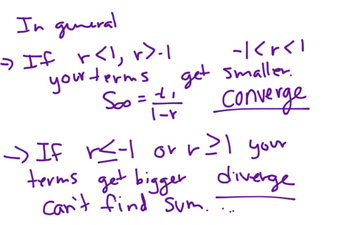 In general
⇒ If r<1, r>-1 -1<r<1
your terms get smaller.
S∞ = t₁/1-r converge
→ If r≤-1 or r≥1 your
terms get bigger diverge
can't find sum. ...